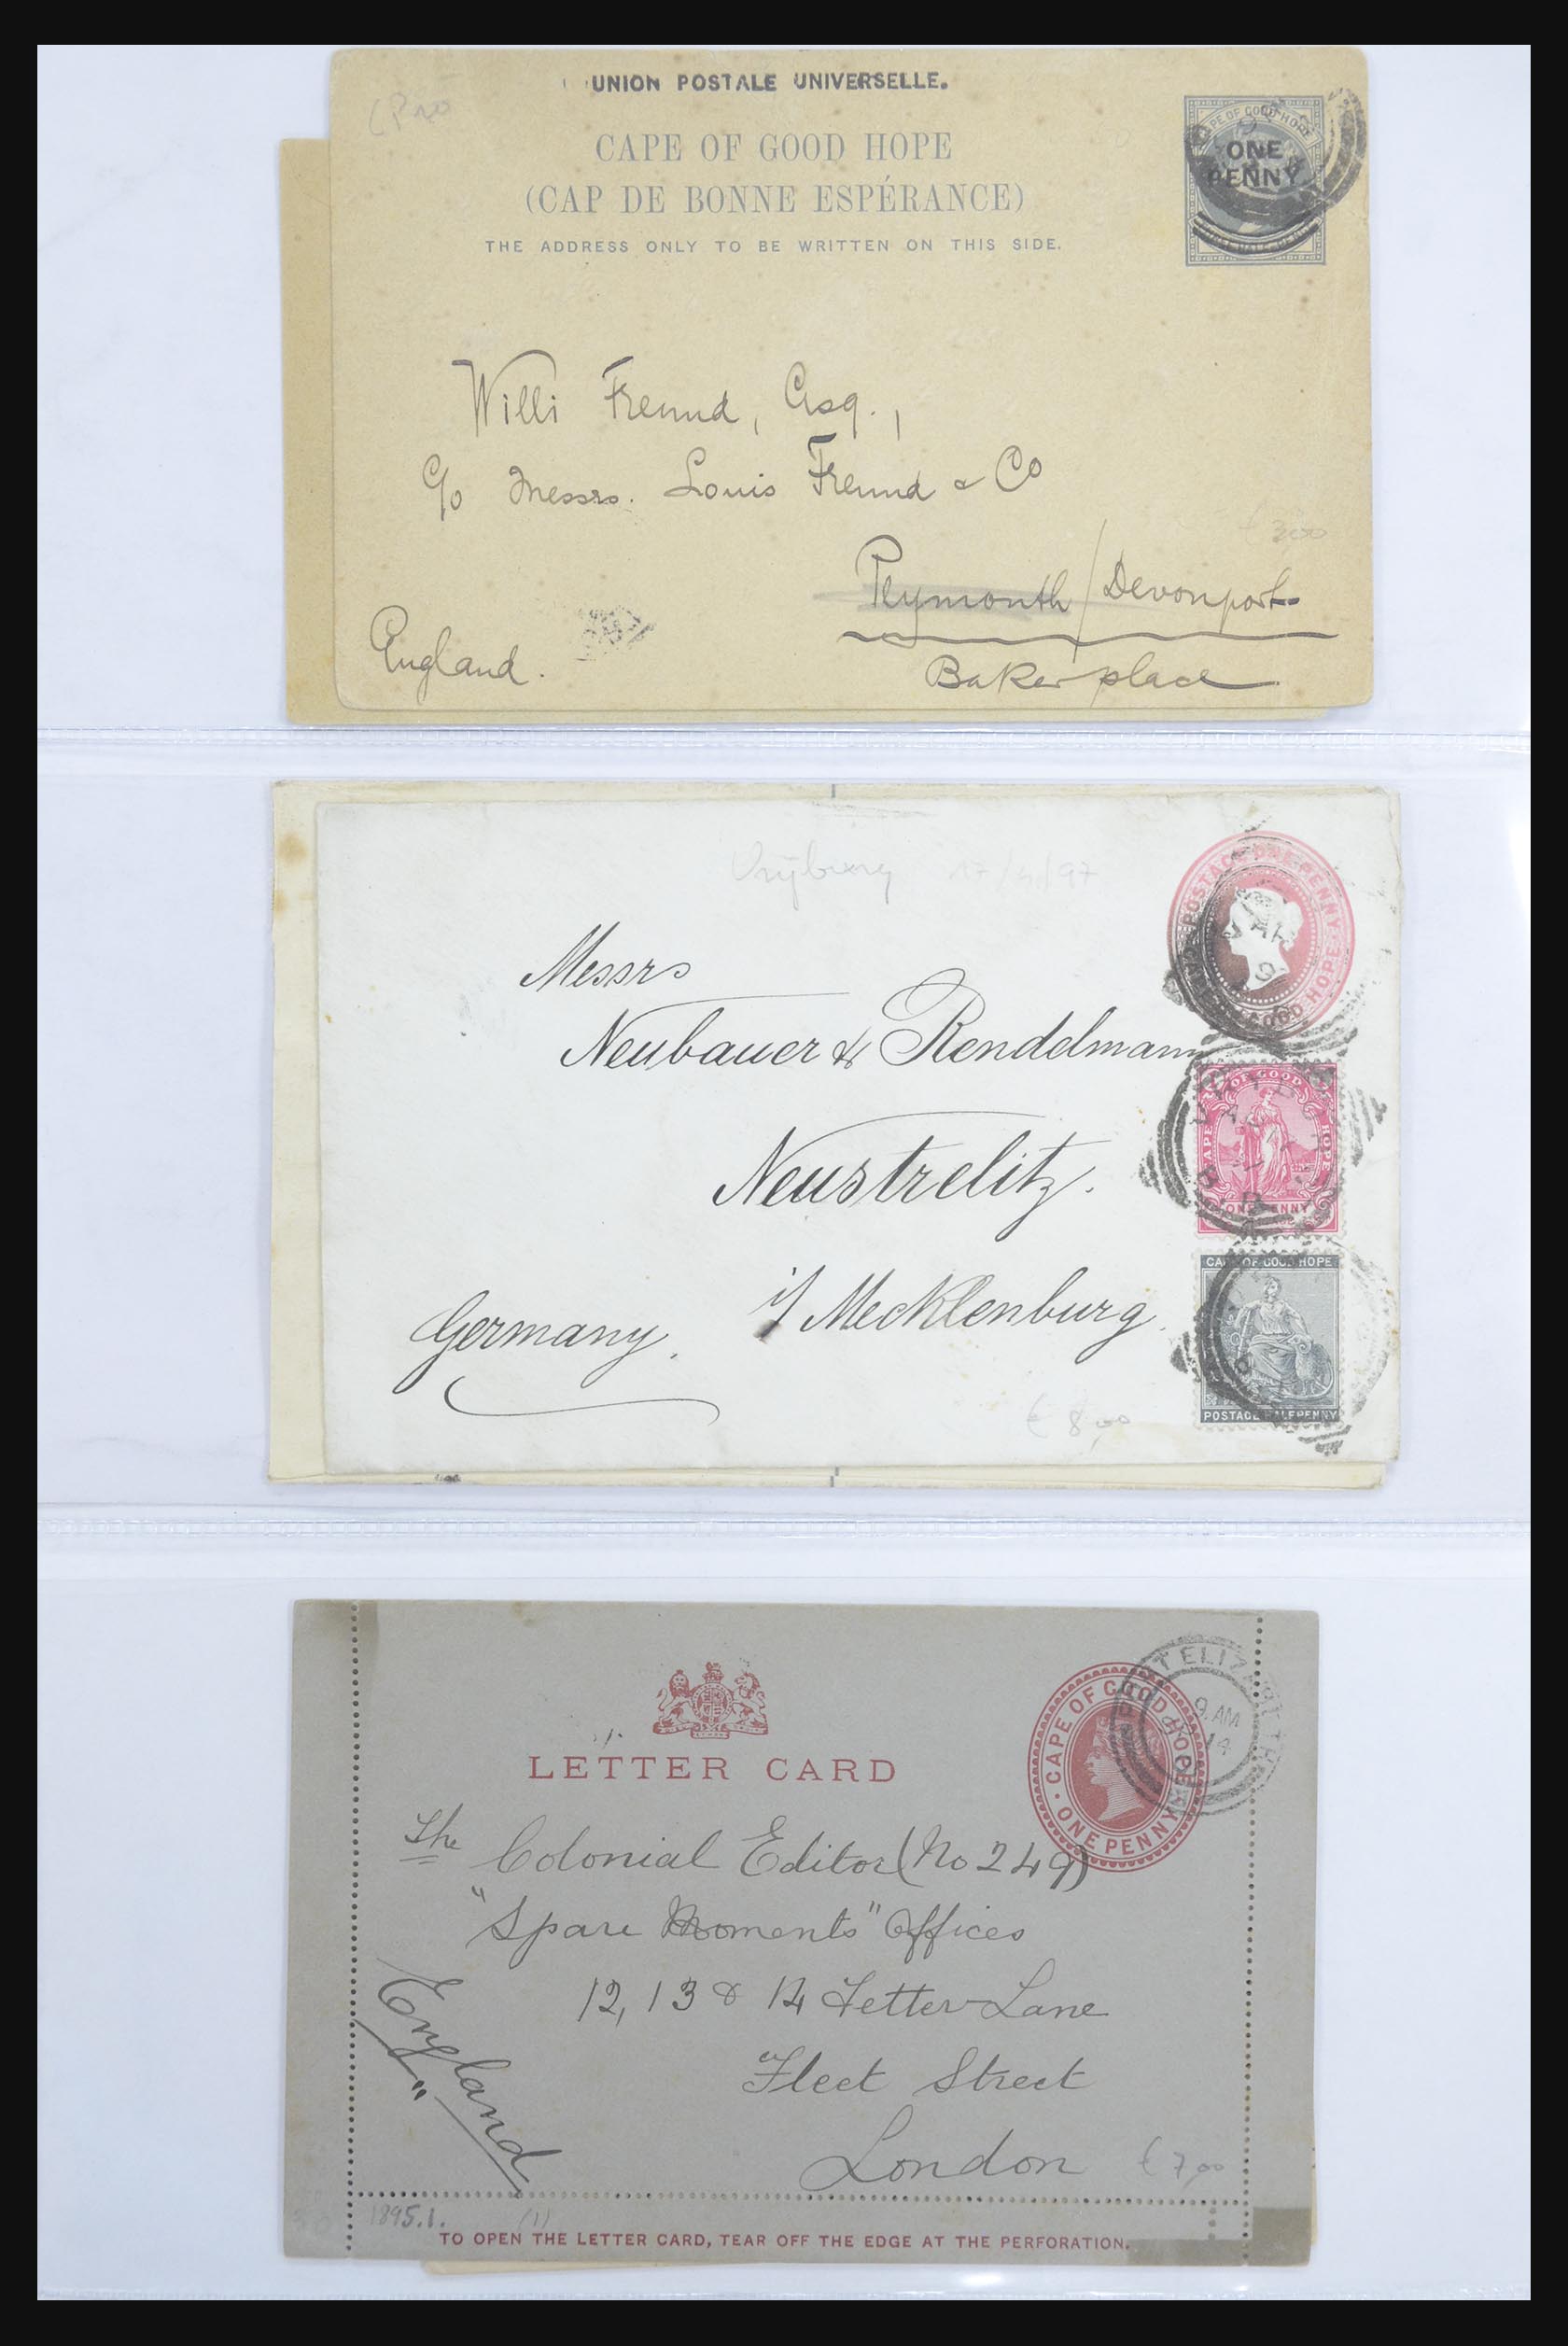 UNION POSTALE UNIVERSELLE.
CAPE OF GOOD HOPE
(CAP DE BONNE ESPÉRANCE)
THE ADDRESS ONLY TO BE WRITTEN ON THIS SIDE.
CAPE OF GOOD HOPE
ONE
PENNY
Willi Freund, Esq.,
c/o Messrs. Louis Freund & Co
€ 3,00
Plymouth / Devonport
Baker place
England.
Vrijburg 17/4/97
POSTAGE ONE PENNY
GOOD HOPE
Messrs
Neubauer & Rendelmann
Neustrelitz.
i/ Mecklenburg.
Germany.
€ 8,00
CAPE OF GOOD HOPE
ONE PENNY
CAPE OF GOOD HOPE
POSTAGE HALFPENNY
LETTER CARD
CAPE OF GOOD HOPE
ONE PENNY
PORT ELIZABETH
9. AM
14
The Colonial Editor (No 249)
"Spare Moments" Offices
12, 13 & 14 Fetter Lane
Fleet Street
London
England
€ 7,00
1895.1. (1)
TO OPEN THE LETTER CARD, TEAR OFF THE EDGE AT THE PERFORATION.